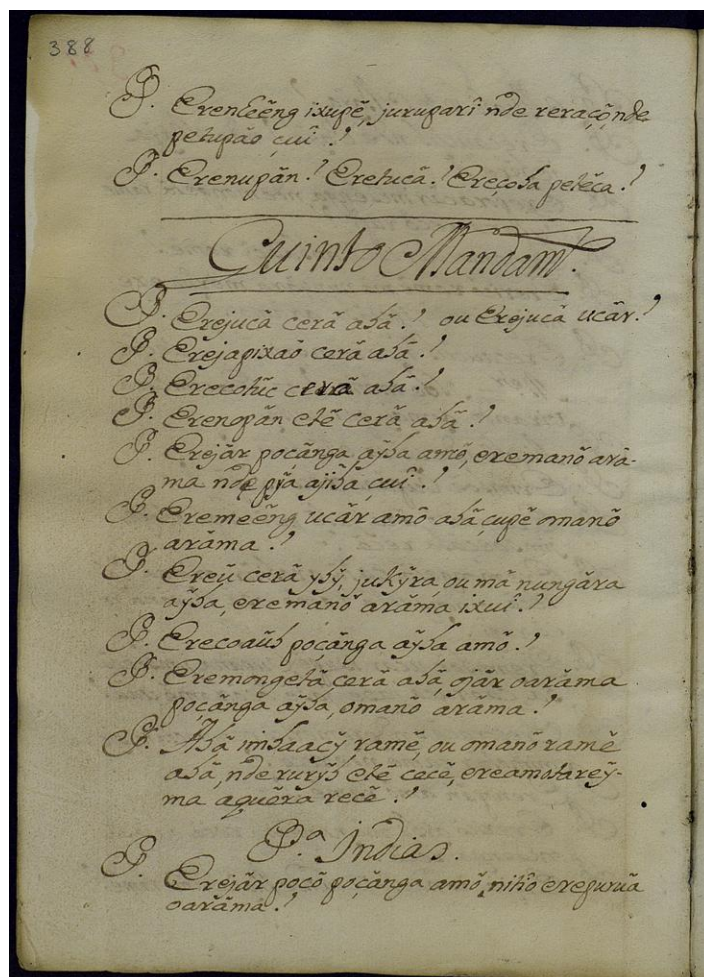 388
P. Erenheẽng ixupẽ, juruparî nde reraçô nde
petupão çuî?
P. Erenupãn? Eretucã? Ereçoba petẽca?
Quinto Mandamto.
P. Erejucã cerã abã? ou Erejucã ucãr?
P. Erejapixaõ cerã abã?
P. Erecotuc cerã abã?
P. Erenopãn etẽ cerã abã?
P. Erejãr poçãnga aỹba amõ, eremanõ arã-
ma nde pỹa ajiba çuî?
P. Eremeẽng ucãr amõ abã çupẽ omanõ
arãma?
P. Ereũ cerã ybỹ, jukỹra, ou mã nungãra
aỹba, eremanõ arãma ixuî?
P. Erecoaũb poçãnga aỹba amõ?
P. Eremongetã cerã abã, ojãr oarãma
poçãnga aỹba, omanõ arãma?
P. Abã imbaacỹ ramẽ, ou omanõ ramẽ
abã, nde rurỹb etẽ cecẽ, ereamotareỹ-
ma aquẽra recẽ?
P.a Indias.
P. Erejãr pocõ poçãnga amõ, nitiô erepuruã
oarãma?